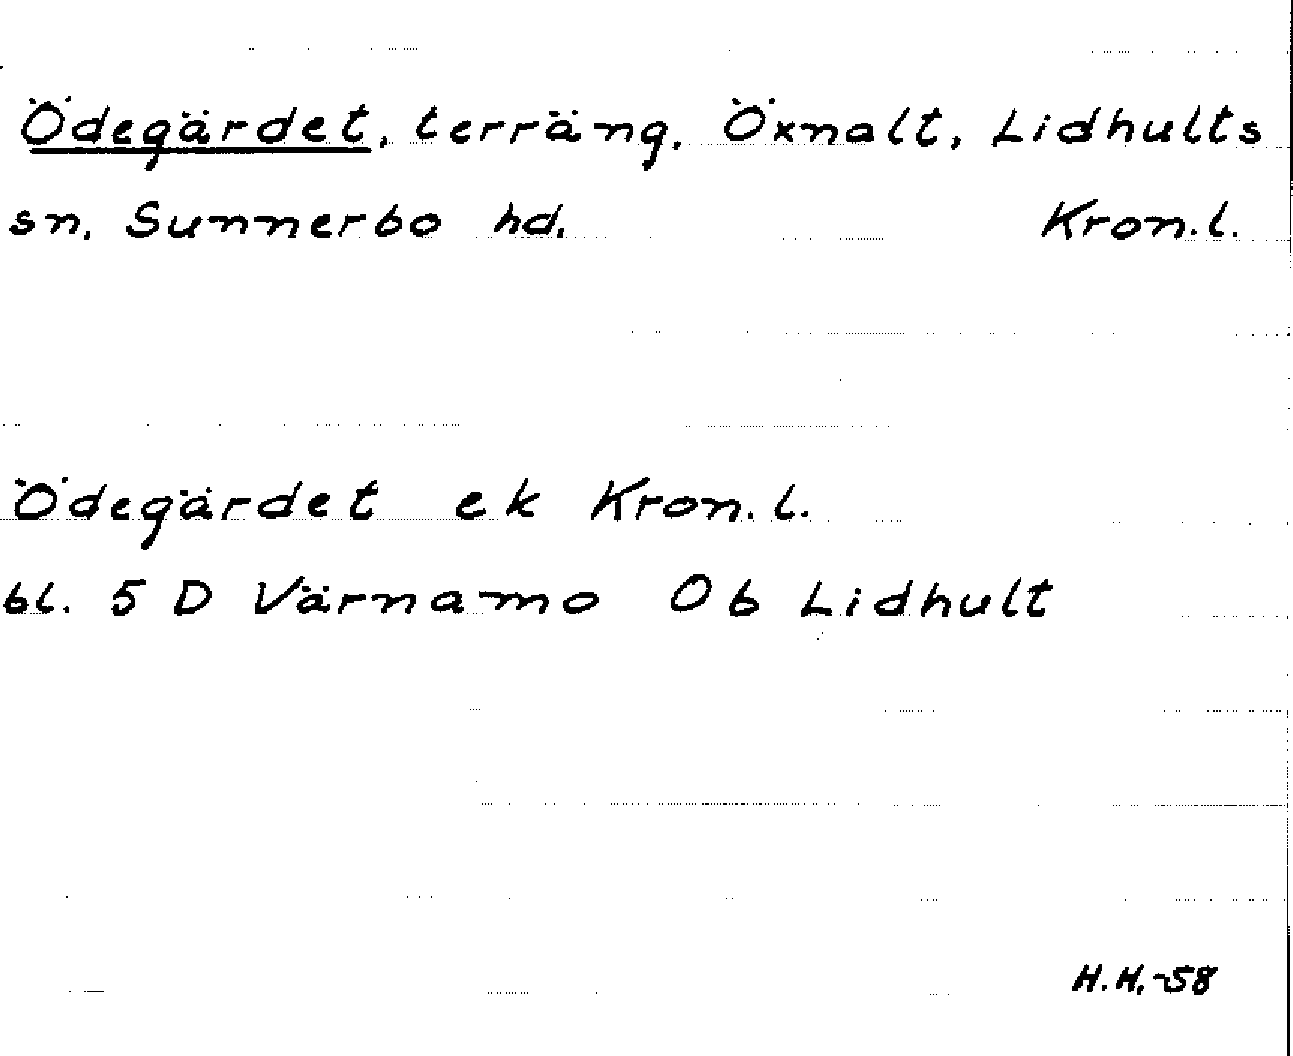 Ödegärdet, terräng, Öxnalt, Lidhults
sn, Sunnerbo hd. Kron.l.
Ödegärdet ek Kron.l.
bl. 5 D Värnamo 0b Lidhult
H.H.-58